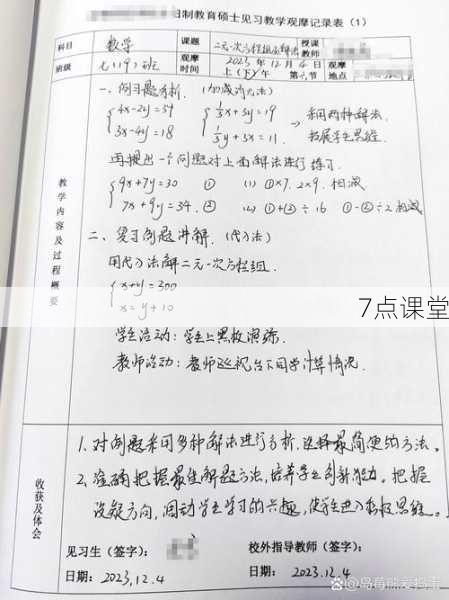 日制教育硕士见习教学观摩记录表（1）
科目 数学 课题 二元一次方程组的解法 授课教师
班级 七（19）班 观摩时间 2023年12月4日 上（下）午 第 节 观摩地点
教学内容及过程概要
一、例习题分析.（加减消元法）
4x-2y=54
3x-4y=18
1/3x+5y=19
1/5y+3x=11.
→ 采用两种解法.
拓展学生思维.
再提出一个问题对上面解法进行练习.
9x+7y=30 ①
7x+9y=34. ②
(1) ①×7. 2×9. 相减
(2) ①+②÷16 ①-②÷2 相减
二、复习例题讲解.（代入法）
用代入法解二元一次方程组.
x+y=300
x=y+10
学生活动：学生上黑板演练.
教师活动：教师巡视台下同学计算情况.
7点课堂
收获及体会
1.对例题采用多种解法进行分析,选择最简便的方法。
2.准确把握最佳解题方法,培养学生创新能力。把握
设疑方向,调动学生学习的兴趣,使学生进入积极思维。
见习生（签字）： 校外指导教师（签字）：
日期：2023.12.4 日期：2023.12.4